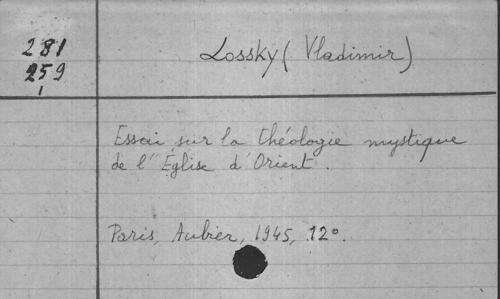 281
259
1
Lossky (Vladimir)
Essai sur la théologie mystique
de l'Église d'Orient.
Paris, Aubier, 1945, 12º.